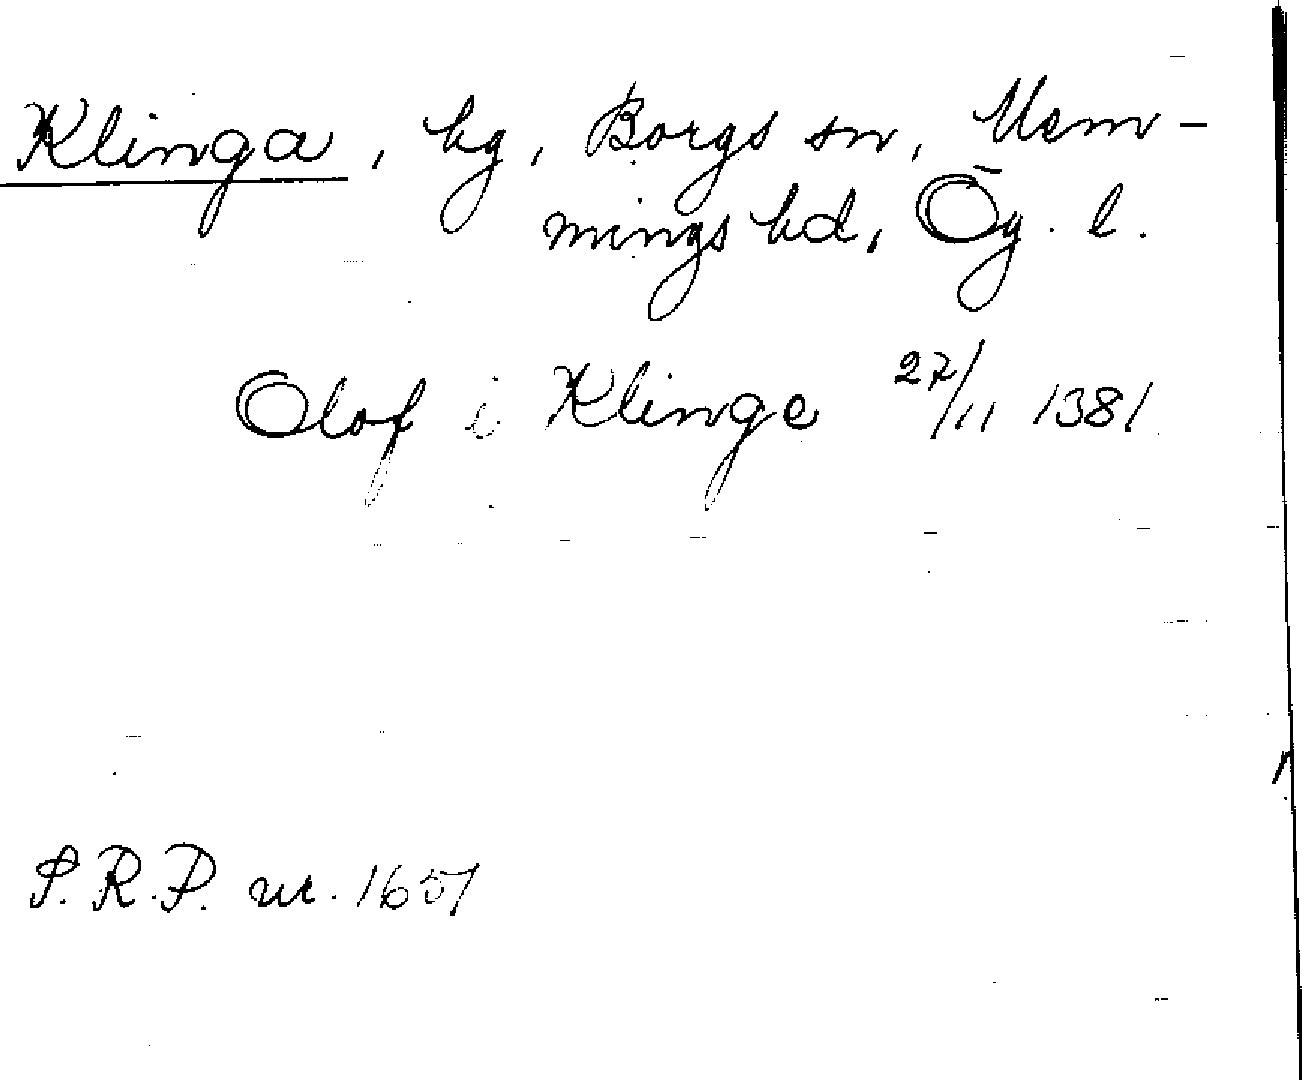 Klinga, by, Borgs sn, Mem-
mings hd, Ög. l.
Olof i Klinge 27/11 1381
S.R.P. nr. 1657